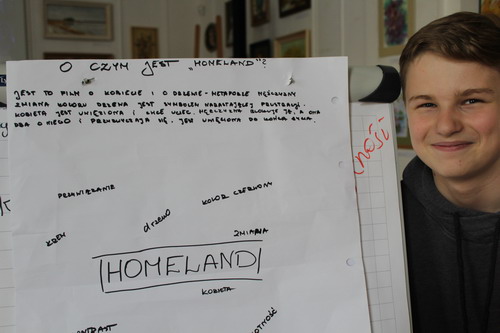 O CZYM JEST „HOMELAND"?
JEST TO FILM O KOBIECIE I O DRZEWIE - METAFORZE MĘŻCZYZNY
ZMIANA KOLORU DRZEWA JEST SYMBOLEM NARASTAJĄCEJ FRUSTRACJI.
KOBIETA JEST UWIĘZIONA I CHCE UCIEC. MĘŻCZYZNA BLOKUJE JĄ, A ONA
DBA O NIEGO I PRZYZWYCZAJA SIĘ. JEST UWIĘZIONA DO KOŃCA ŻYCIA.
PRZYWIĄZANIE
KOLOR CZERWONY
drzewo
KREW
ZMIANA
HOMELAND
KOBIETA
NTRAST
OTNOŚĆ
NOŚĆ